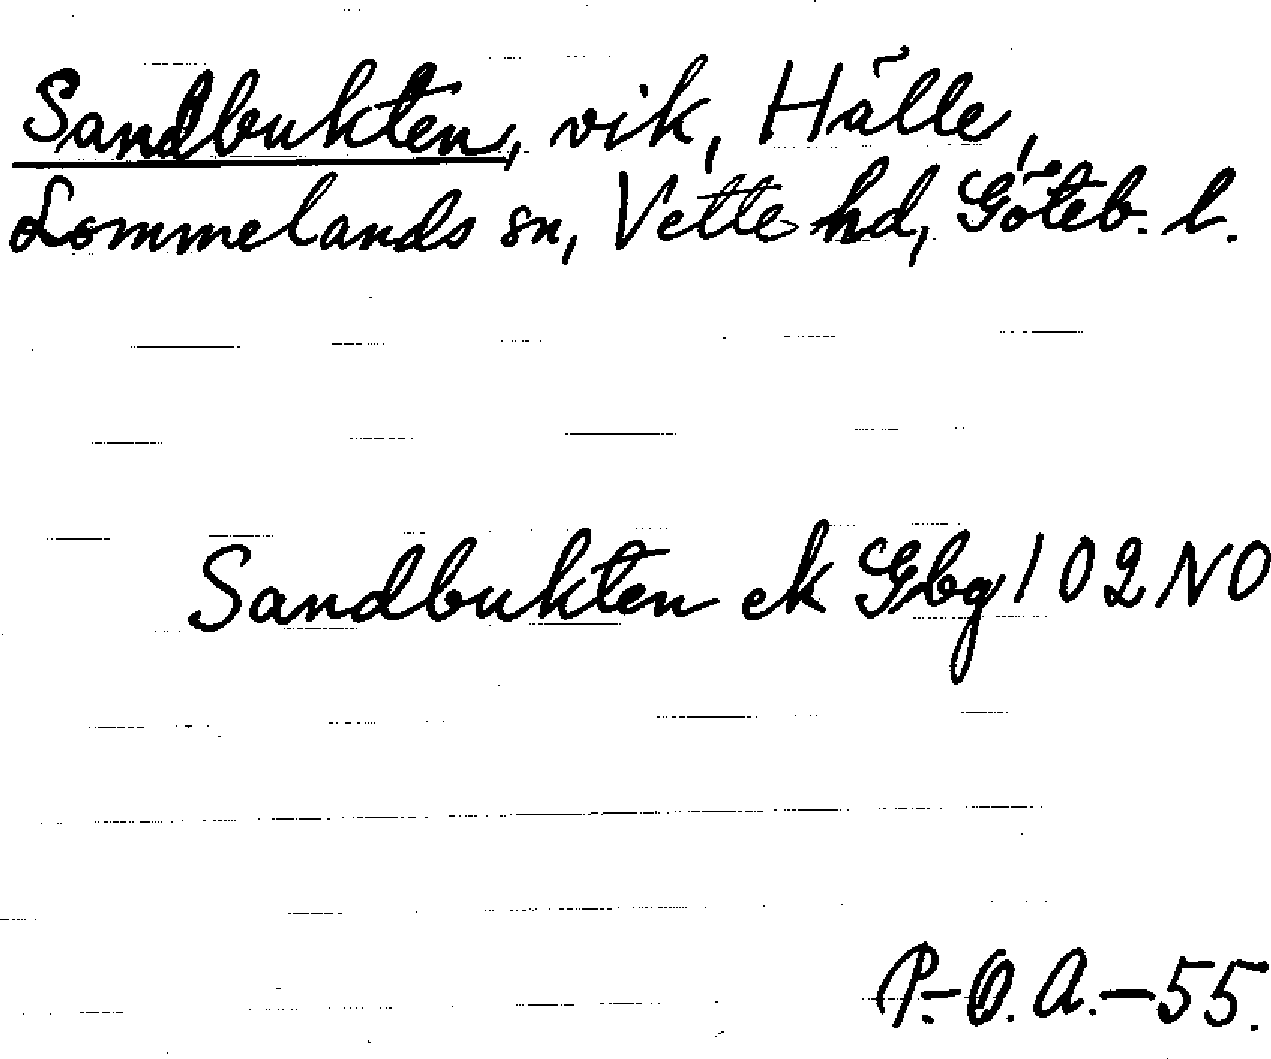 Sandbukten, vik, Hälle,
Lommelands sn, Vette hd, Göteb. l.
Sandbukten ek Gbg 102 NO
P.-O. A. - 55.